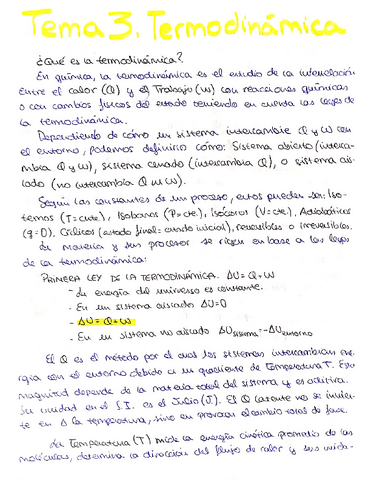 Tema 3. Termodinámica
¿Qué es la termodinámica?
En química, la termodinámica es el estudio de la interrelación
entre el calor (Q) y el Trabajo (w) con reacciones químicas
o con cambios físicos del estado teniendo en cuenta las leyes de
la termodinámica.
Dependiendo de cómo un sistema intercambie Q y W con
el entorno, podemos definirlo cómo: Sistema abierto (interca-
mbia Q y W), sistema cerrado (intercambia Q), o sistema ais-
lado (no intercambia Q ni W).
Según las constantes de un proceso, estos pueden ser: Iso-
termos (T=cte.), Isobaros (P=cte.), Isócoros (V=cte.), Adiabáticos
(q=0), Cíclicos (estado final = estado inicial), reversibles o irreversibles.
La materia y sus procesos se rigen en base a las leyes
de la termodinámica:
PRIMERA LEY DE LA TERMODINÁMICA. ΔU = Q + W
- La energía del universo es constante.
- En un sistema aislado ΔU = 0
- ΔU = Q + W
- En un sistema no aislado ΔUsistema = -ΔUentorno
El Q es el método por el cual los sistemas intercambian ene-
rgía con el entorno debido a un gradiente de Temperatura T. Esta
magnitud depende de la materia total del sistema y es aditiva.
Su unidad en el S.I. es el Julio (J). El Q latente no se invier-
te en Δ la temperatura, sino en provocar el cambio total de fase.
La Temperatura (T) mide la energía cinética promedio de las
moléculas, determina la dirección del flujo de calor y sus unida-